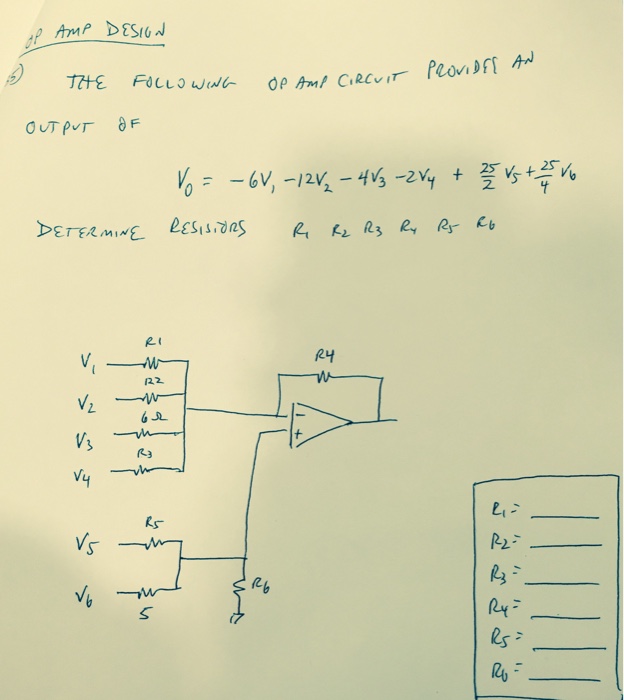 OP AMP DESIGN
5) THE FOLLOWING OP AMP CIRCUIT PROVIDES AN
OUTPUT OF
V0 = -6V1 -12V2 - 4V3 -2V4 + 25/2 V5 + 25/4 V6
DETERMINE RESISTORS R1 R2 R3 R4 R5 R6
R1
V1
R4
R2
V2
6Ω
V3
R3
V4
-
+
R5
V5
R6
V6
5
R1 =
R2 =
R3 =
R4 =
R5 =
R6 =